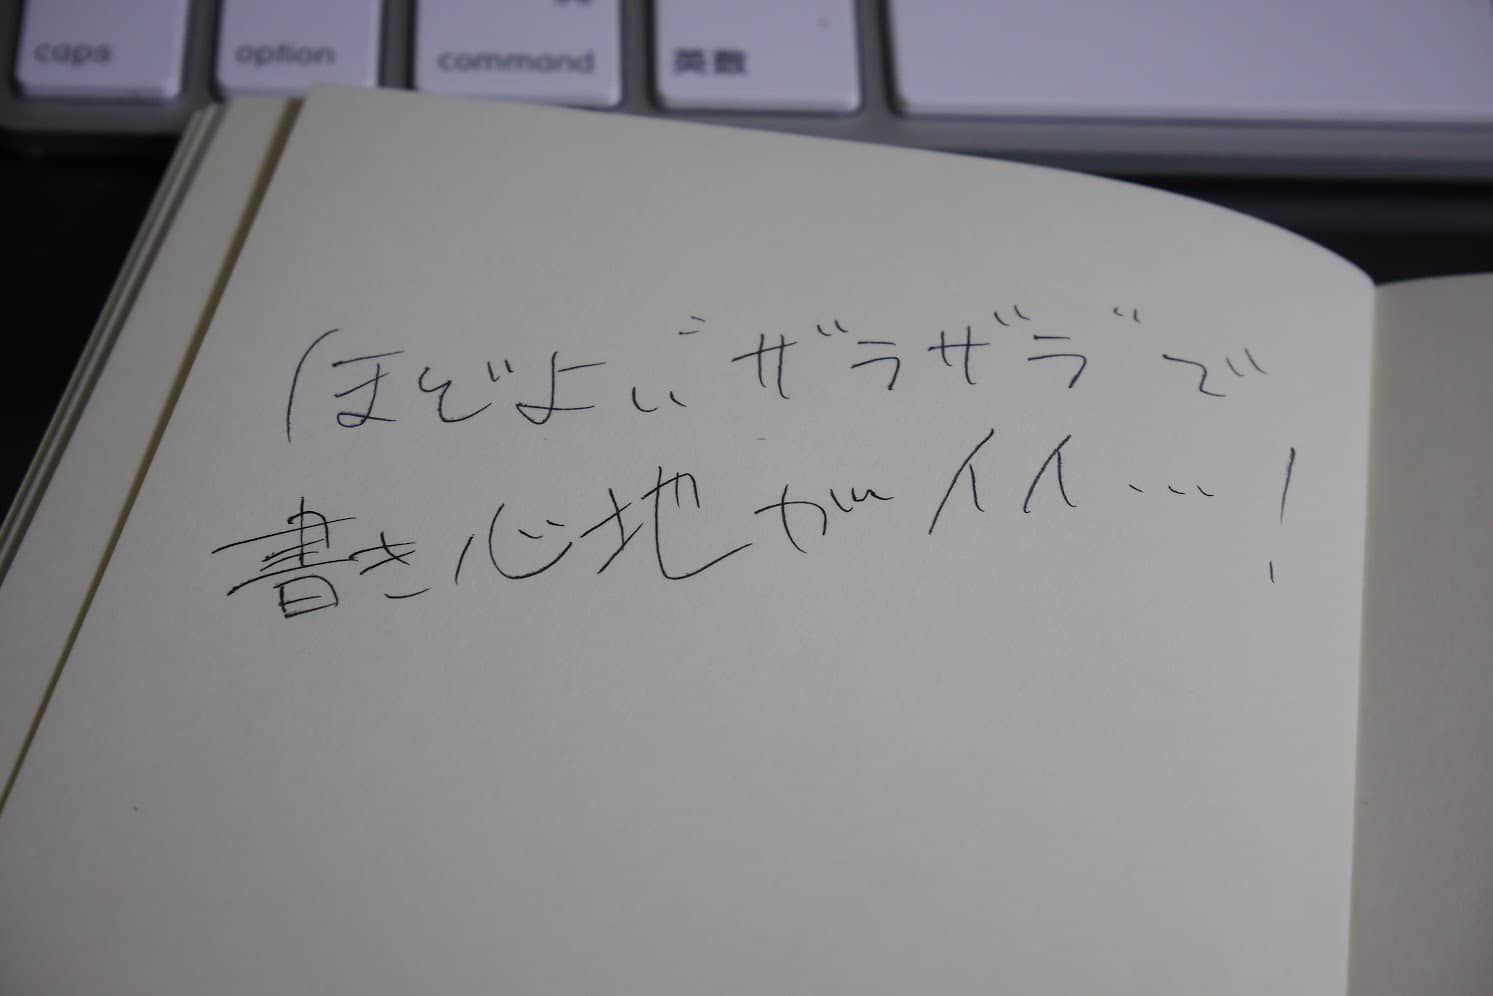 caps option command 英数
ほどよい"ザラザラ"で
書き心地がイイ…!